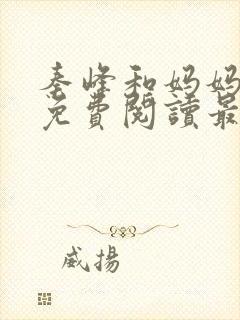 秦峰和妈妈
免費閱讀最
威揚